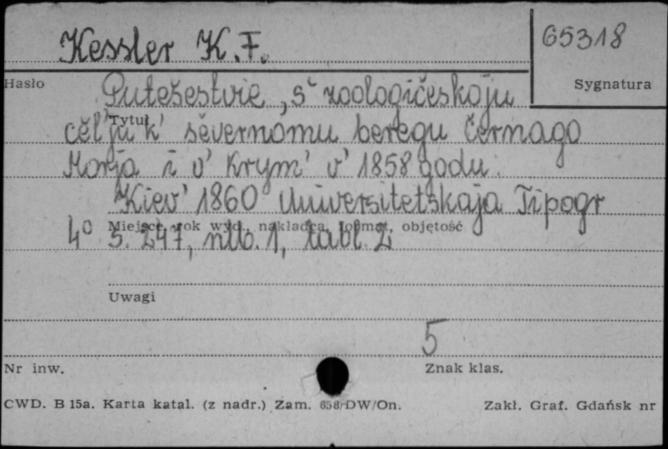 Kessler K.F.
65318
Hasło
Sygnatura
Putešestvie, s' zoologičeskoju
Tytuł
cěl'ju k' severnomu beregu Černago
Morja i v' Krym' v' 1858 godu.
Kiev' 1860 Universitetskaja Tipogr
Miejsce, rok wyd., nakładca, format, objętość
4° S. 247, nlb. 1, tabl. 2
Uwagi
5
Nr inw.
Znak klas.
CWD. B 15a. Karta katal. (z nadr.) Zam. 658/DW/On.
Zakł. Graf. Gdańsk nr